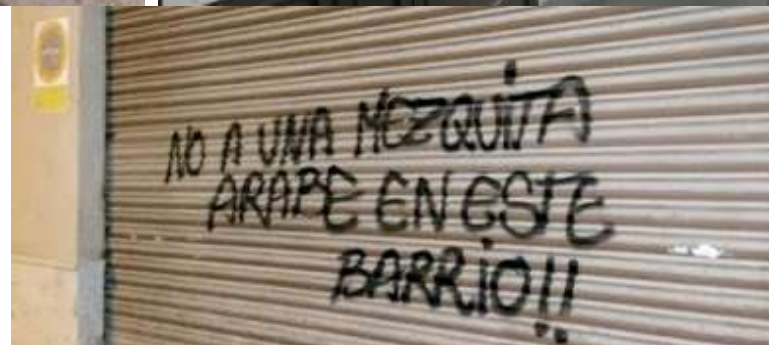 NO A UNA MEZQUITA
ARABE EN ESTE
BARRIO!!